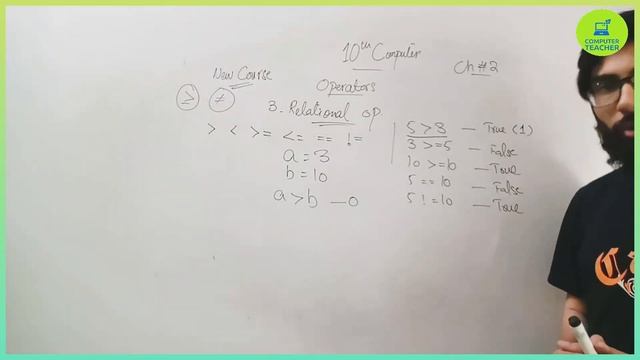 10th Computer
New Course
Ch #2
Operators
≥ ≠
3. Relational op.
> < >= <= == !=
a = 3
b = 10
a > b — 0
5 > 3 — True (1)
3 >= 5 — False
10 >= 10 — True
5 == 10 — False
5 != 10 — True
COMPUTER
TEACHER